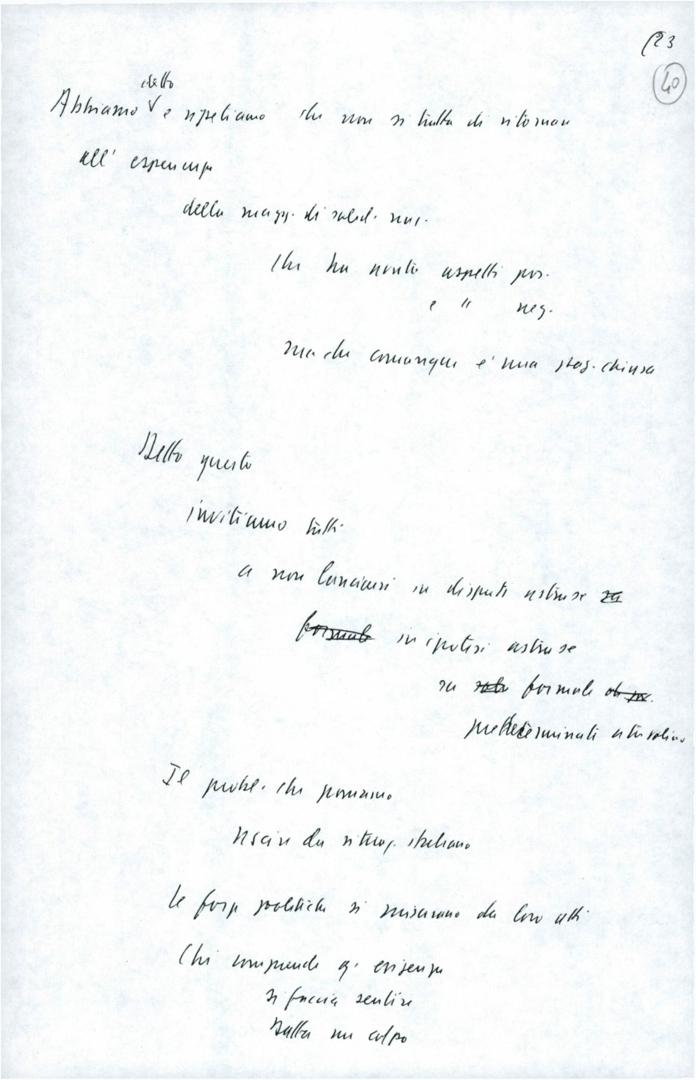 23
40
detto
Abbiamo V e ripetiamo che non si tratta di ritornare
all' esperienza
della magg. di solid. naz.
che ha avuto aspetti pos.
e " neg.
ma che comunque e' una stag. chiusa
Detto questo
invitiamo tutti
a non lanciarsi in dispute astruse su
formule in ipotesi astruse
su solo formule
predeterminate
Il probl. che poniamo
uscire da situaz. italiana
Le forze politiche si misurano da loro atti
Chi comprende q. esigenza
si faccia sentire
Batta un colpo